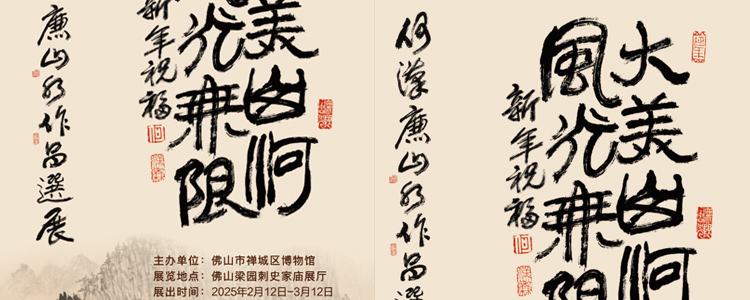 美山河
光無限
新年祝福
廉山水作品選展
主办单位：佛山市禅城区博物馆
展览地点：佛山梁园刺史家庙展厅
展出时间：2025年2月12日-3月12日
大美山河
風光無限
新年祝福
何漢廉山水作品選